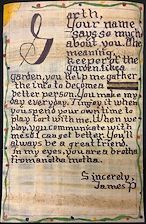 Garth,
Your name
says so much
about you. The
meaning,
Keeper of the
Garden. Like a
garden, you help me gather
the info to become a
better person. You make my
day everyday. I enjoy it when
you spend your own time to
play fort with me. When we
play, you communicate with
me so I can get better. You'll
always be a great friend.
In my eyes, you are a broth
from anotha motha.
Sincerely,
James P